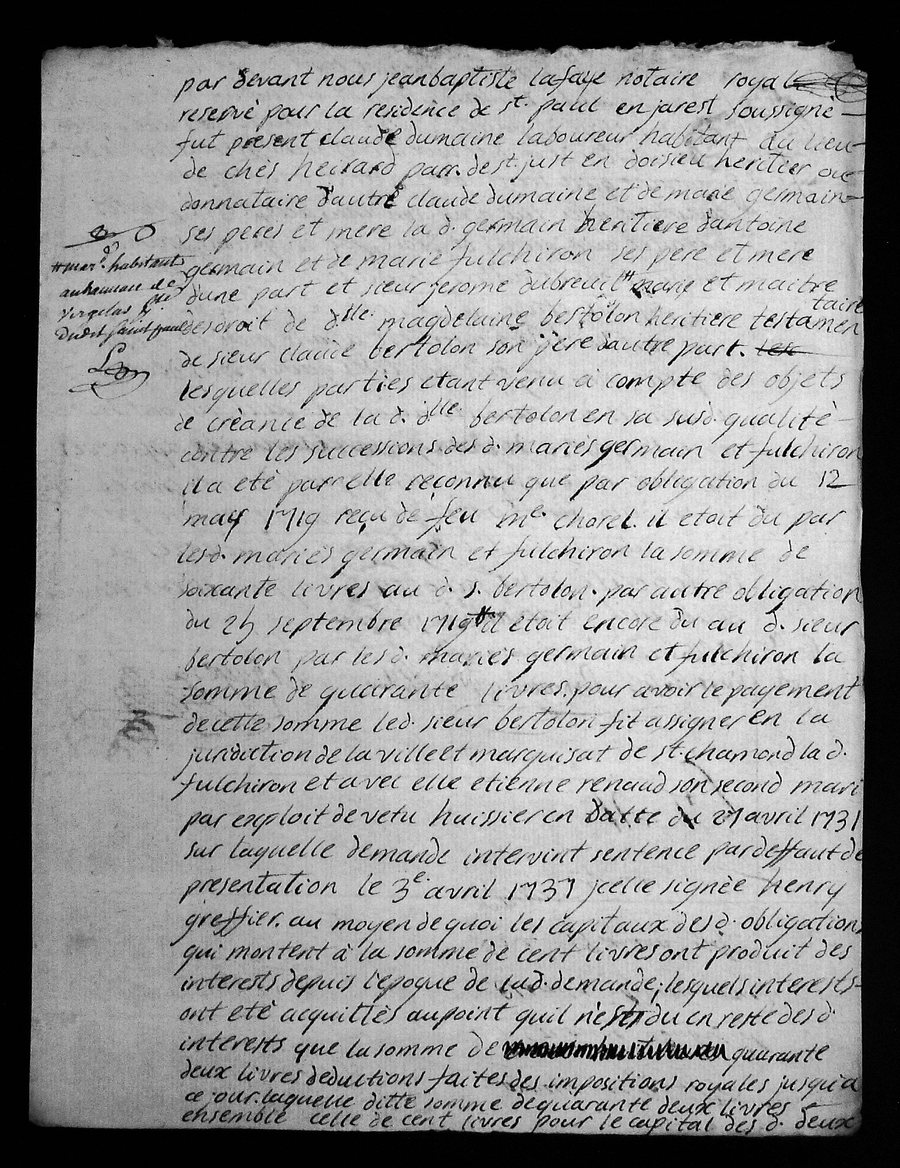 par devant nous jeanbaptiste lafaye notaire royal
reservé pour la residence de st. paul en jarest soussigné
fut present claude dumaine laboureur habitant du lieu
de ches heirard parr. de st. just en doisieu heritier ou
donnataire d'autre claude dumaine et de marie germain
ses peres et mere la d. germain heritiere d'antoine
germain et de marie fulchiron ses pere et mere
d'une part et sieur jerome dubreuil # marie et maitre
des droit de dlle. magdelaine bertolon heritiere testamen
taire
de sieur claude bertolon son pere d'autre part.
lesquelles parties etant venu a compte des objets
de créance de la d. dlle. bertolon en sa susd. qualité
contre les successions des d. mariés germain et fulchiron
il a eté parr elle reconnu que par obligation du 12
may 1719 reçu de feu me. chorel. il etoit du par
lesd. mariés germain et fulchiron la somme de
soixante livres au d. s. bertolon. par autre obligation
du 25 septembre 1719 il etoit encore du au d. sieur
bertolon par les d. mariés germain et fulchiron la
somme de quarante livres. pour avoir le payement
de cette somme led. sieur bertolon fit assigner en la
juridiction de la ville et marquisat de st. chamond la d.
fulchiron et avec elle etienne renaud son second mari
par exploit de vetu huissier en datte du 27 avril 1731
sur laquelle demande intervint sentence par deffaut de
presentation le 3e. avril 1737 jcelle signée henry
greffier. au moyen de quoi les capitaux des d. obligations
qui montent à la somme de cent livres ont produit des
interests depuis l'epoque de lad. demande, lesquels interests
ont eté acquittés au point quil n'est du en reste des d.
interests que la somme de quarante
deux livres deductions faites des impositions royales jusqu'a
ce jour. laquelle ditte somme de quarante deux livres
ensemble celle de cent livres pour le capital des d. deux
# mar.d habitant
au hameau de
dudit saint paul